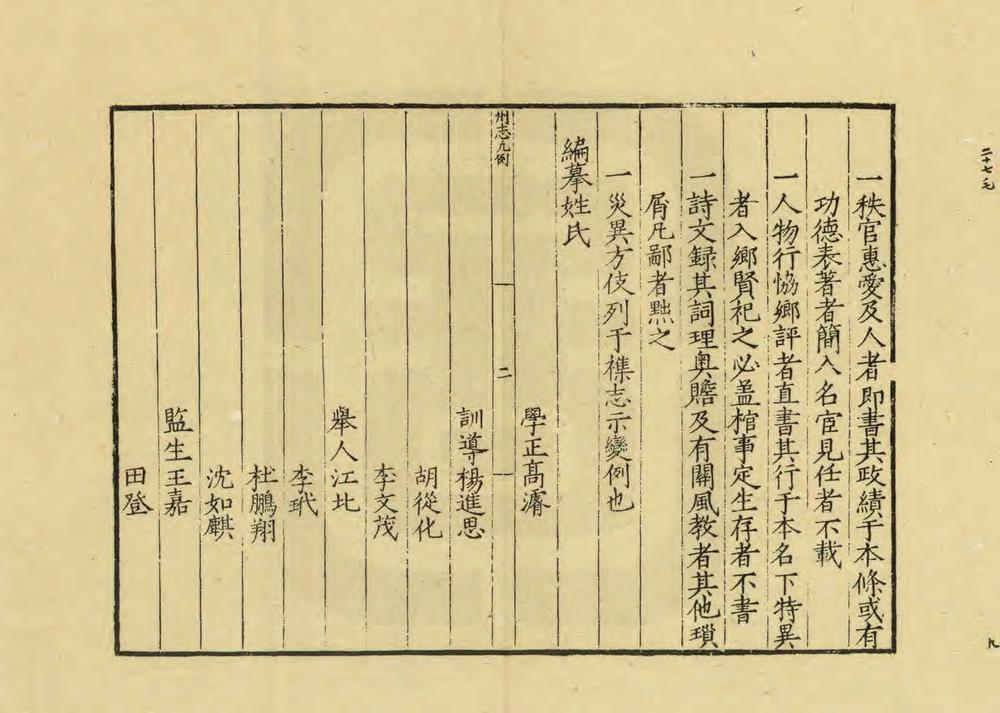 二十七毛
一秩官惠愛及人者即書其政績于本條或有
功德表著者簡入名宦見任者不載
一人物行恊鄉評者直書其行于本名下特異
者入鄉賢祀之必盖棺事定生存者不書
一詩文録其詞理奥贍及有關風教者其他瑣
屑凡鄙者黜之
一災異方伎列于襍志示變例也
編摹姓氏
學正髙濬
州志凡例
二
訓導楊進思
胡從化
李文茂
舉人江北
李玳
杜鵬翔
沈如麒
監生王嘉
田登
九